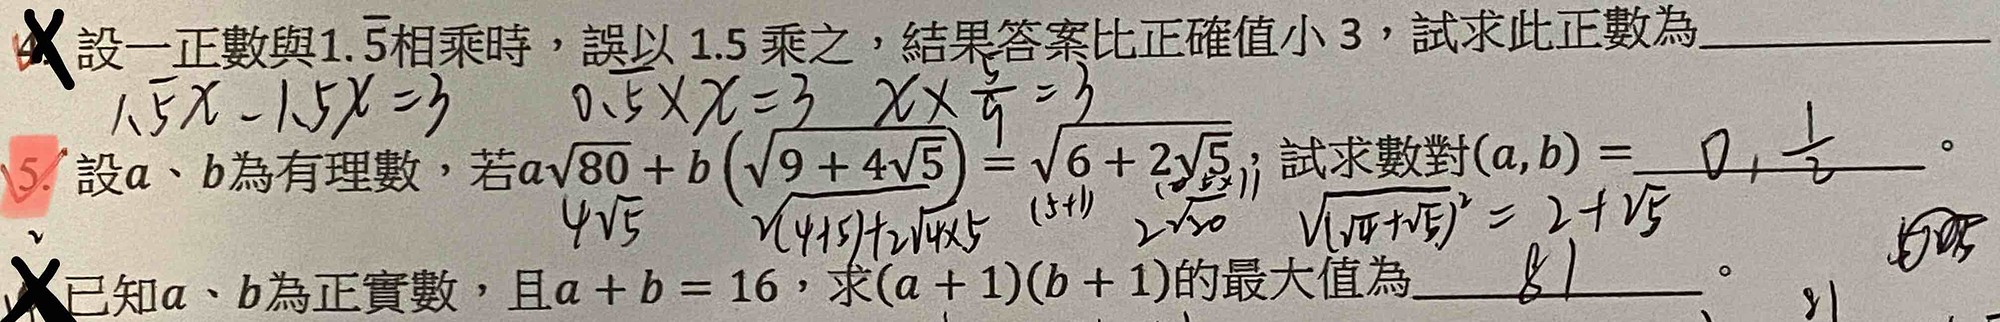 4. 設一正數與1.5̅相乘時，誤以 1.5 乘之，結果答案比正確值小 3，試求此正數為
1.5̅x - 1.5x = 3 0.5̅ × x = 3 x × 5/9 = 3
5. 設a、b為有理數，若a√80 + b(√(9 + 4√5)) = √(6 + 2√5)；試求數對(a, b) = 0, 1/2 。
4√5 √((4+5)+2√(4×5)) (5+1) √((√4+√5)²) = 2+√5
已知a、b為正實數，且a + b = 16，求(a + 1)(b + 1)的最大值為 81 。
81